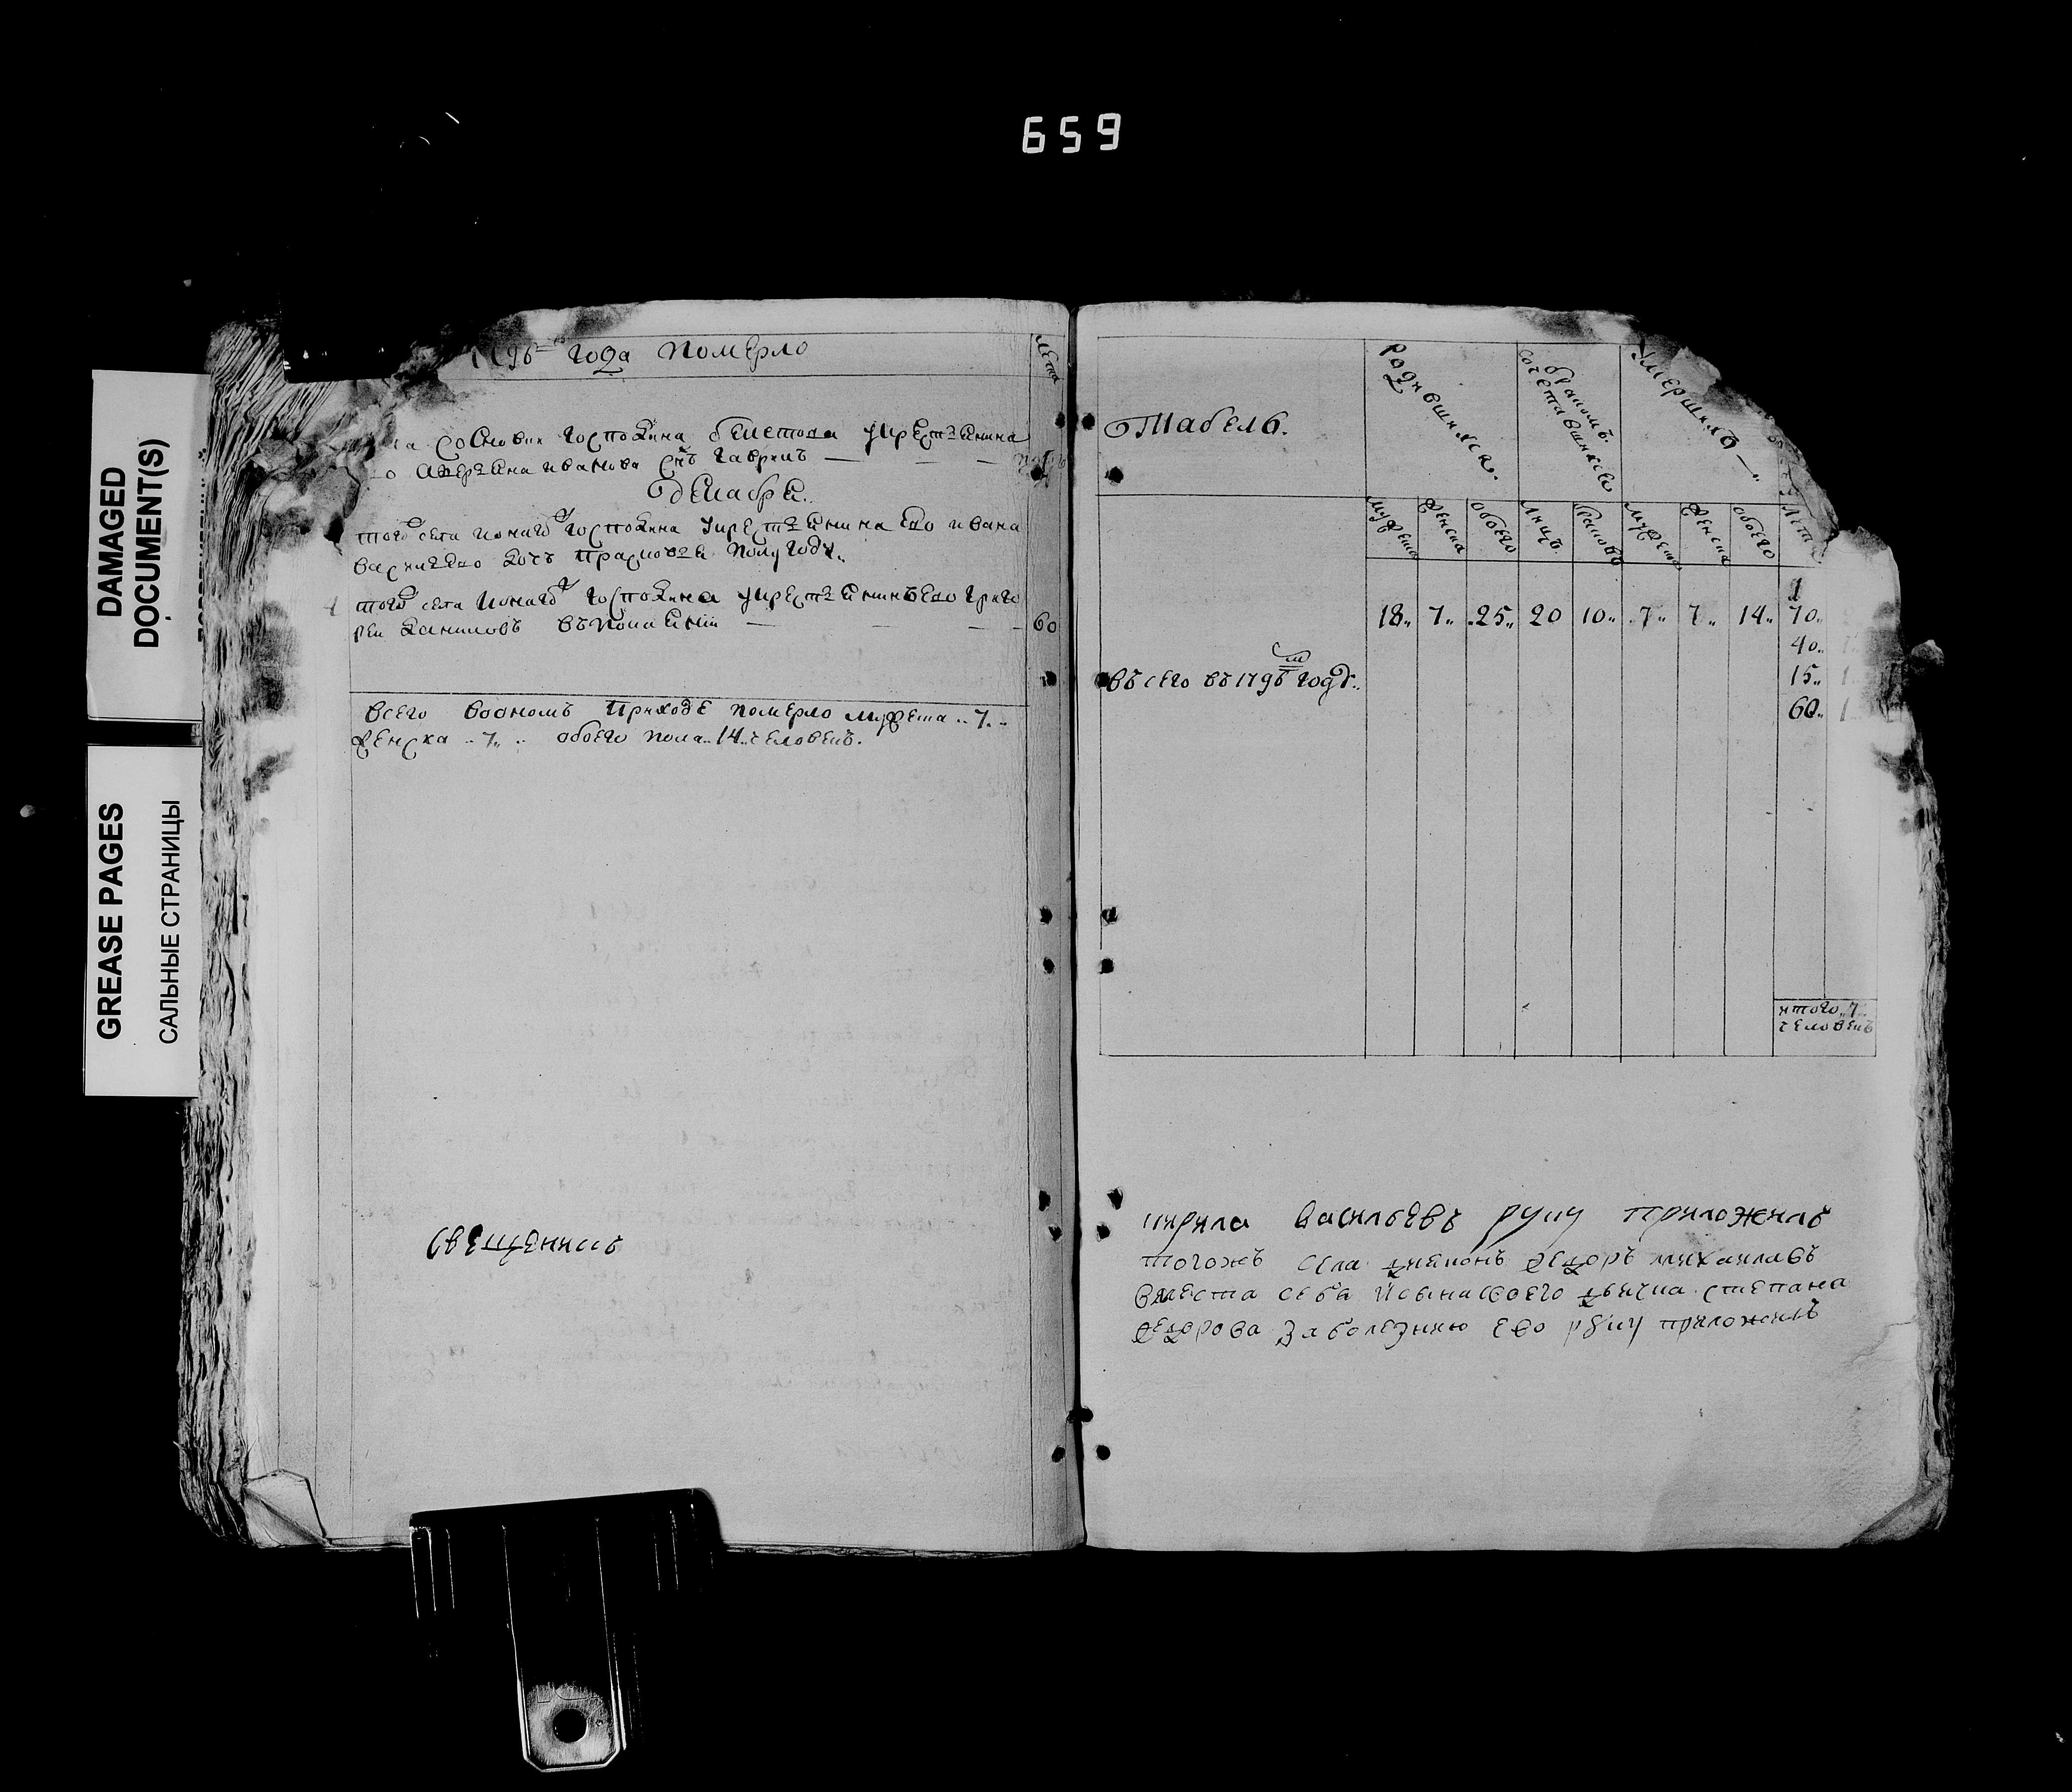 659
DAMAGED
DOCUMENT(S)
GREASE PAGES
САЛЬНЫЕ СТРАНИЦЫ
года померло
лета
сосновки господина бекетова крестьянина
иванова снъ гаврилъ
декабре.
того села ионаго господина крестьянина ево ивана
василева дочь прасковья полугоду.
того села ионаго господина крестьянинъ ево григо
реи даниловъ въ покаянии 60
всего в оном приходе померло мужеска 7
женска 7 обоего пола 14 человекъ.
священникъ
Табель.
родившихся.
бракомъ
сочетавшихся
умершихъ
мужеска
женска
обоего
лицъ
браковъ
мужеска
женска
обоего
лета
18 7 25 20 10 7 7 14
1
70
40 1
15 1
60 1
всего въ 1796 м годе
итого 7
человекъ
кирила васильевъ руку приложилъ
тогожъ села дияконъ федоръ михаилавъ
вместа себя и сына своего дьячка степана
федорова за болезнию ево руку приложилъ